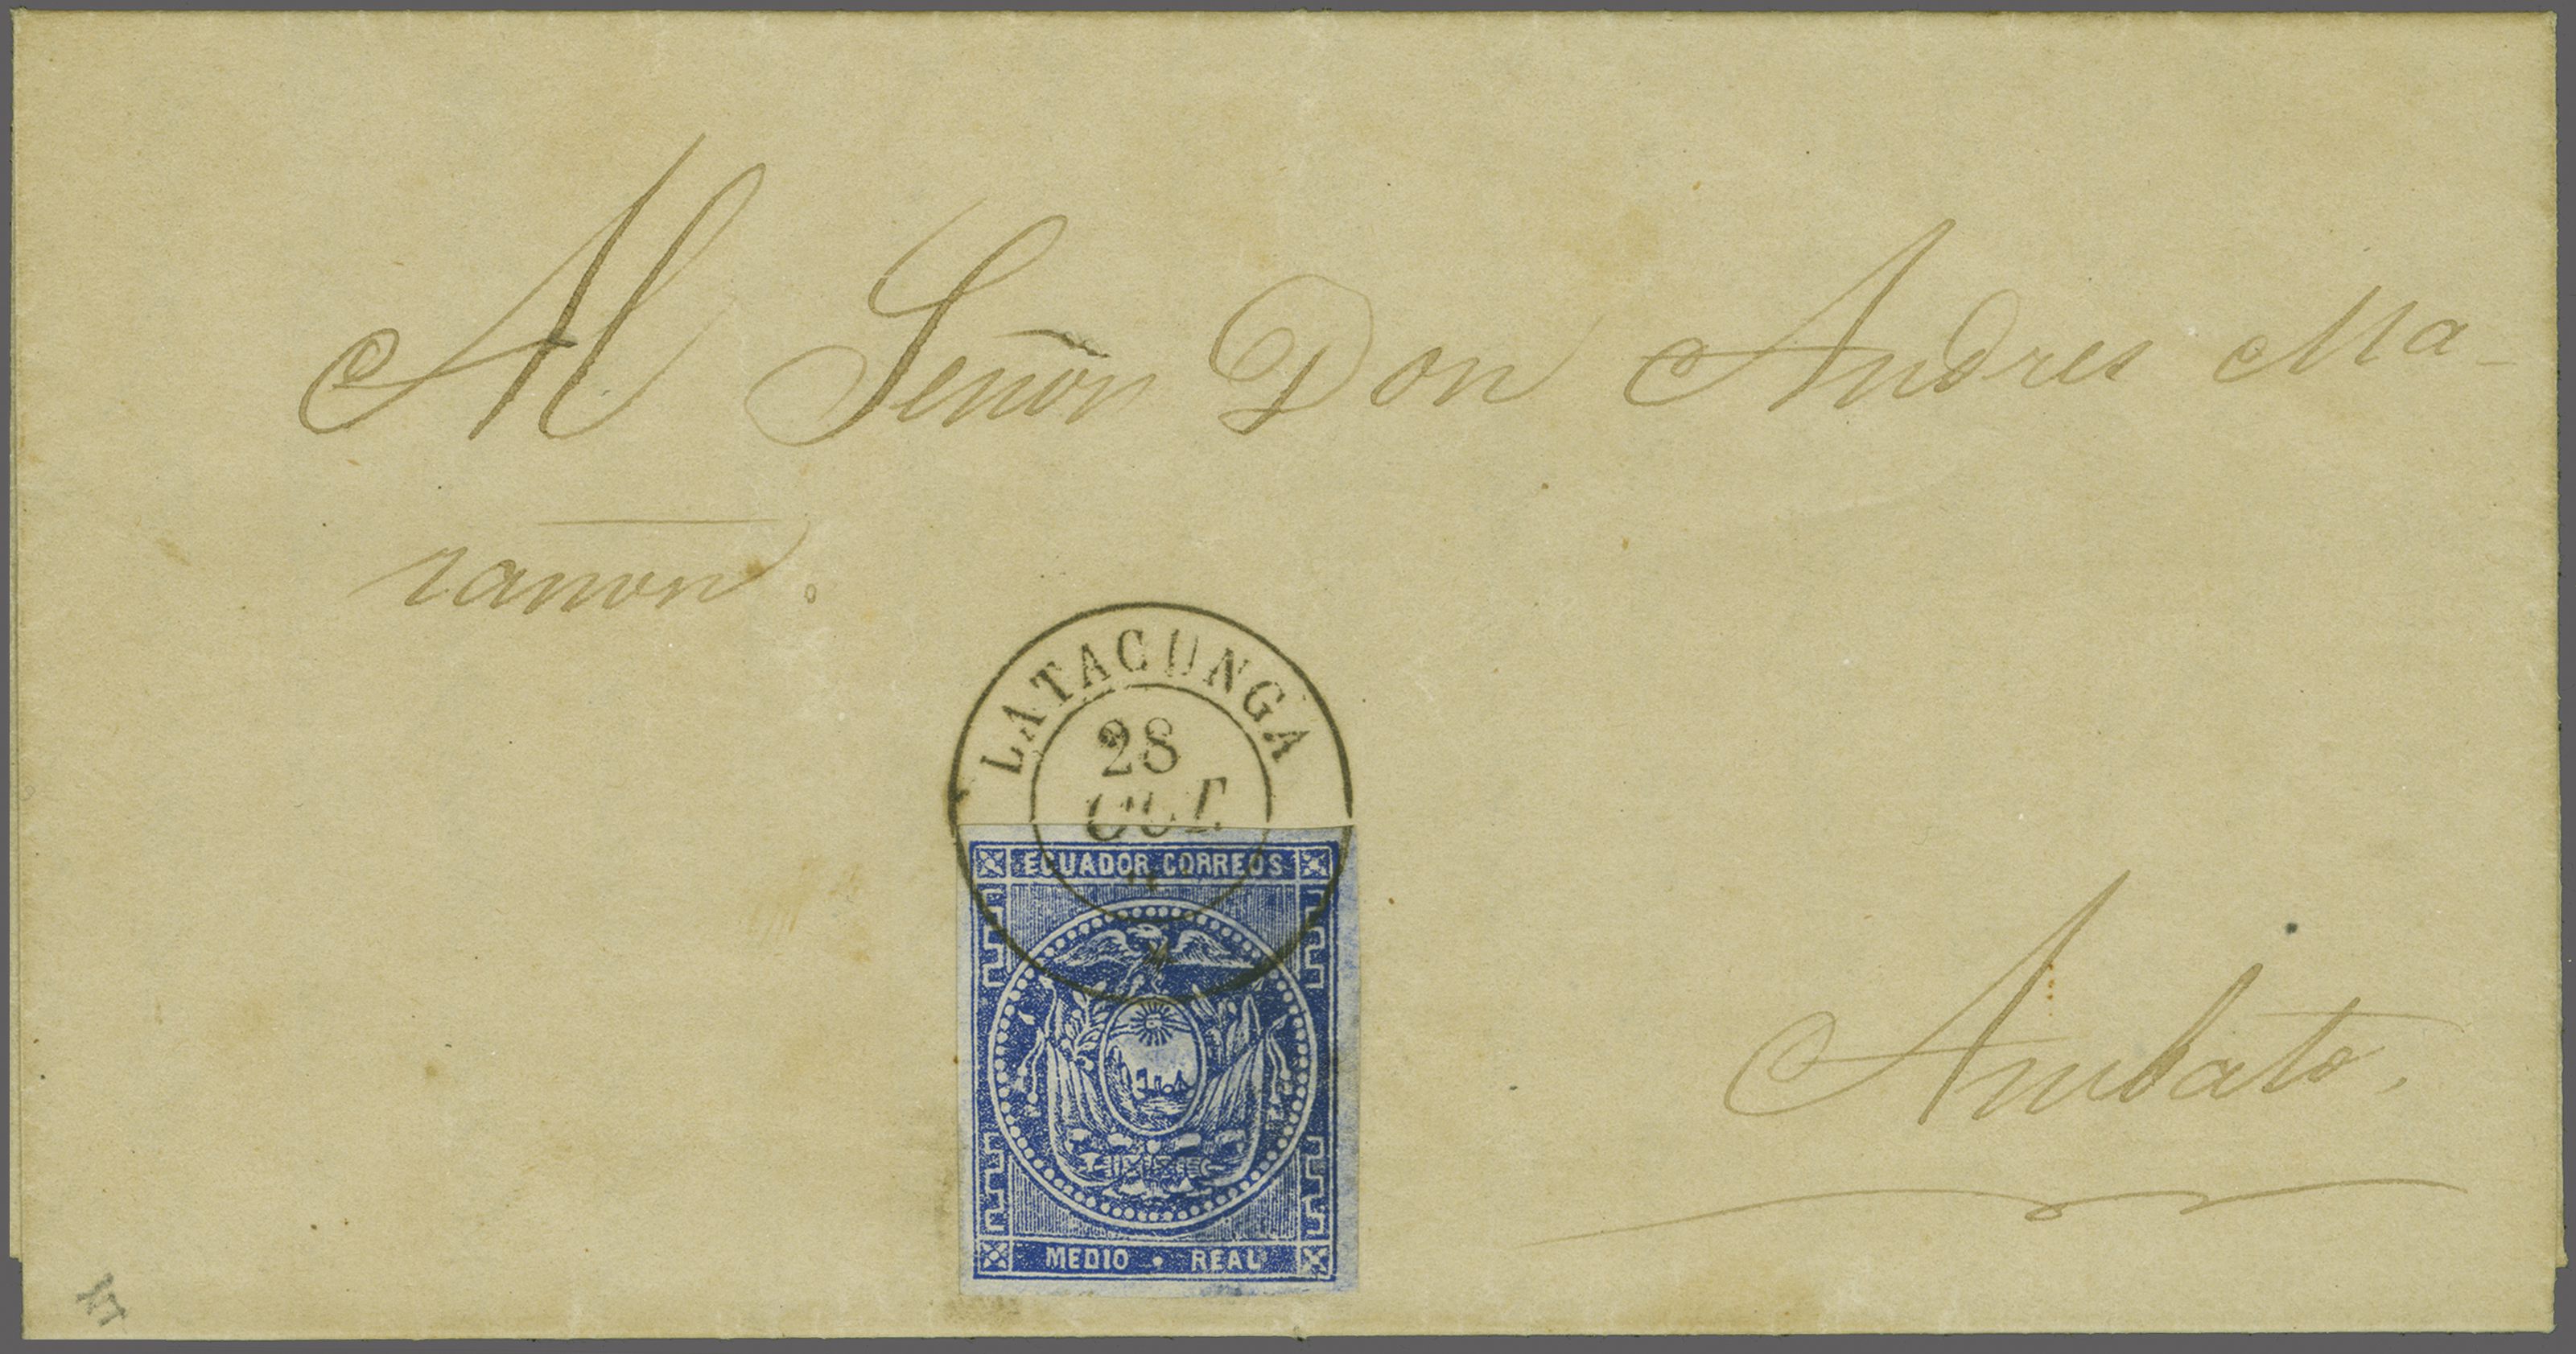 Al Señor Don Andres Ma-
rañon.
LATACUNGA
28
OCT.
ECUADOR CORREOS
MEDIO • REAL
Ambato.